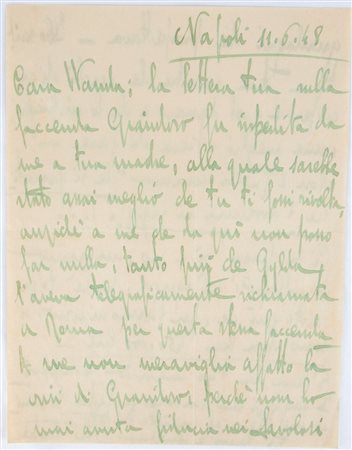 Napoli 11.6.48
Cara Wanda, la lettera tua sulla
faccenda Graindoro fu inspedita da
me a tua madre, alla quale sarebbe
stato assai meglio che tu ti fossi rivolta,
anziché a me che da qui non posso
far nulla, tanto più che
l'aveva telegraficamente richiamata
a Roma per questa stessa faccenda
A me non meraviglia affatto la
crisi di perchè non ho
mai avuta fiducia nei